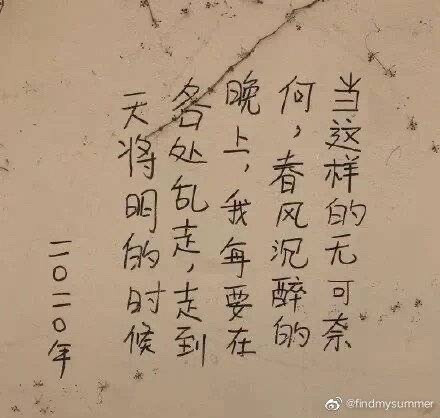 当这样的无可奈
何，春风沉醉的
晚上，我每要在
各处乱走，走到
天将明的时候
二〇二〇年
@findmysummer